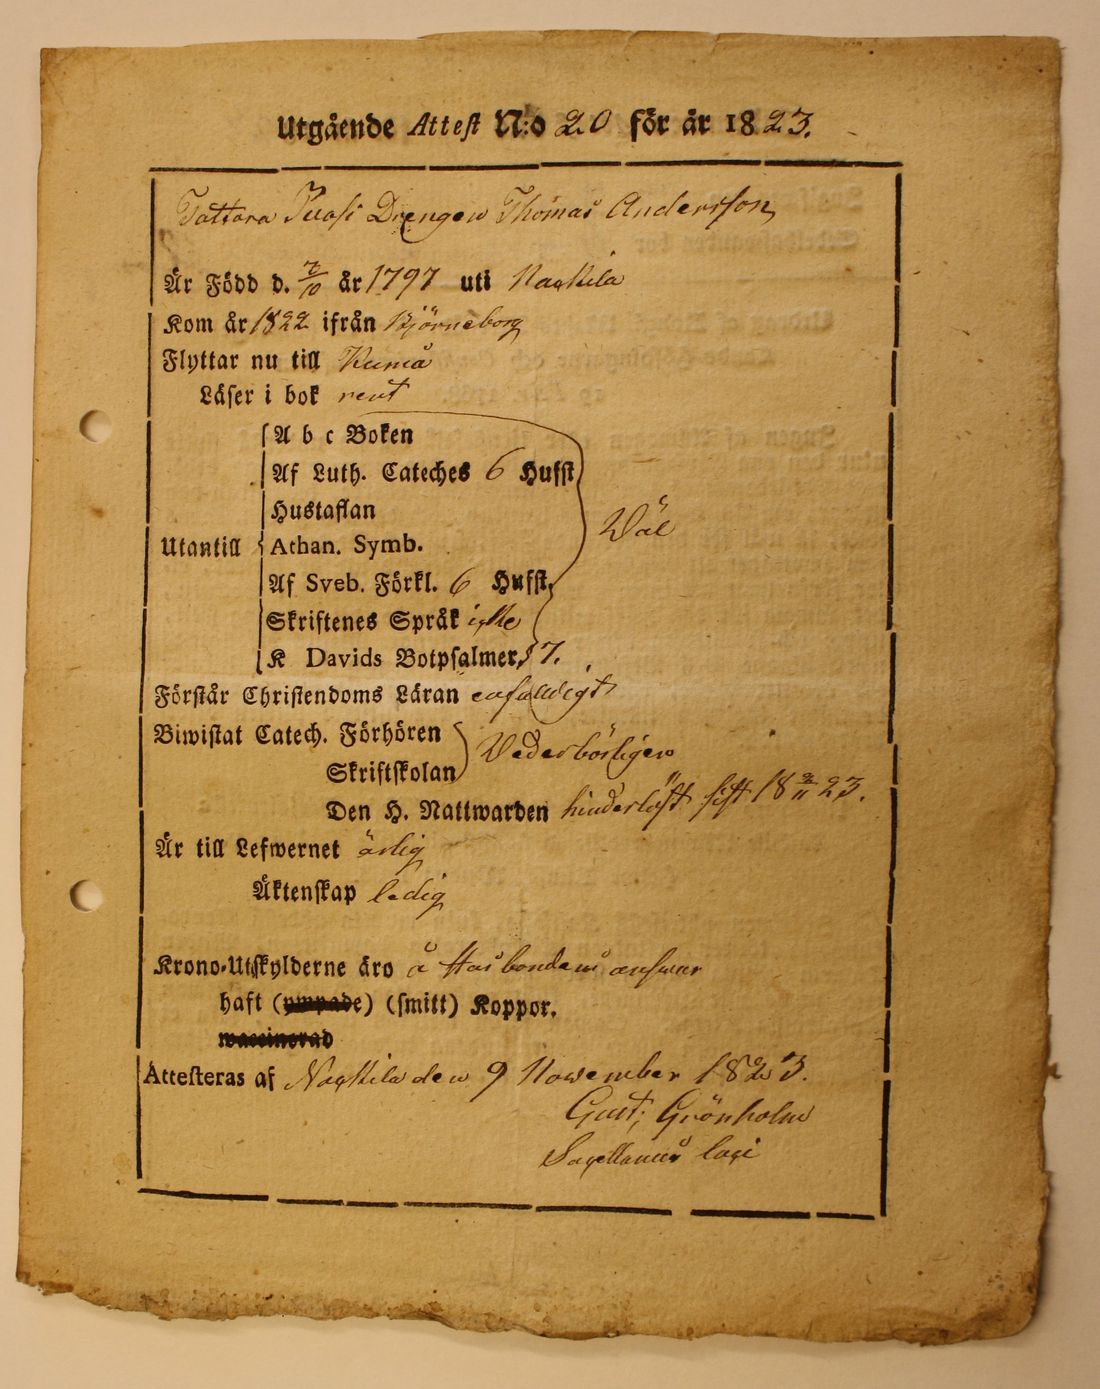 Utgående Attest N:o 20 för år 1823.
Tattara Juosi Drengen Thomas Andersson
Är Född d. 7/10 år 1797 uti Nackila
Kom år 1822 ifrån Björneborg
Flyttar nu till Kumå
Läser i bok rent
A b c Boken
Af Luth. Cateches 6 Hufst
Hustaflan
Utantill Athan. Symb.
Wäl
Af Sveb. Förkl. 6 Hufst,
Skriftenes Språk icke
K Davids Botpsalmer, 7.
Förstår Christendoms Läran enfaldigt
Biwistat Catech. Förhören
Wederbörligen
Skriftskolan
Den H. Nattwarden hinderlöst sist 18 9/11 23.
Är till Lefwernet ärlig
Äktenskap ledig
Krono-Utskylderne äro å Hosbondens answar
haft (ympade) (smitt) Koppor.
waccinerad
Attesteras af Nackila den 9 November 1823.
Gust; Grönholm
Sacellanus loci